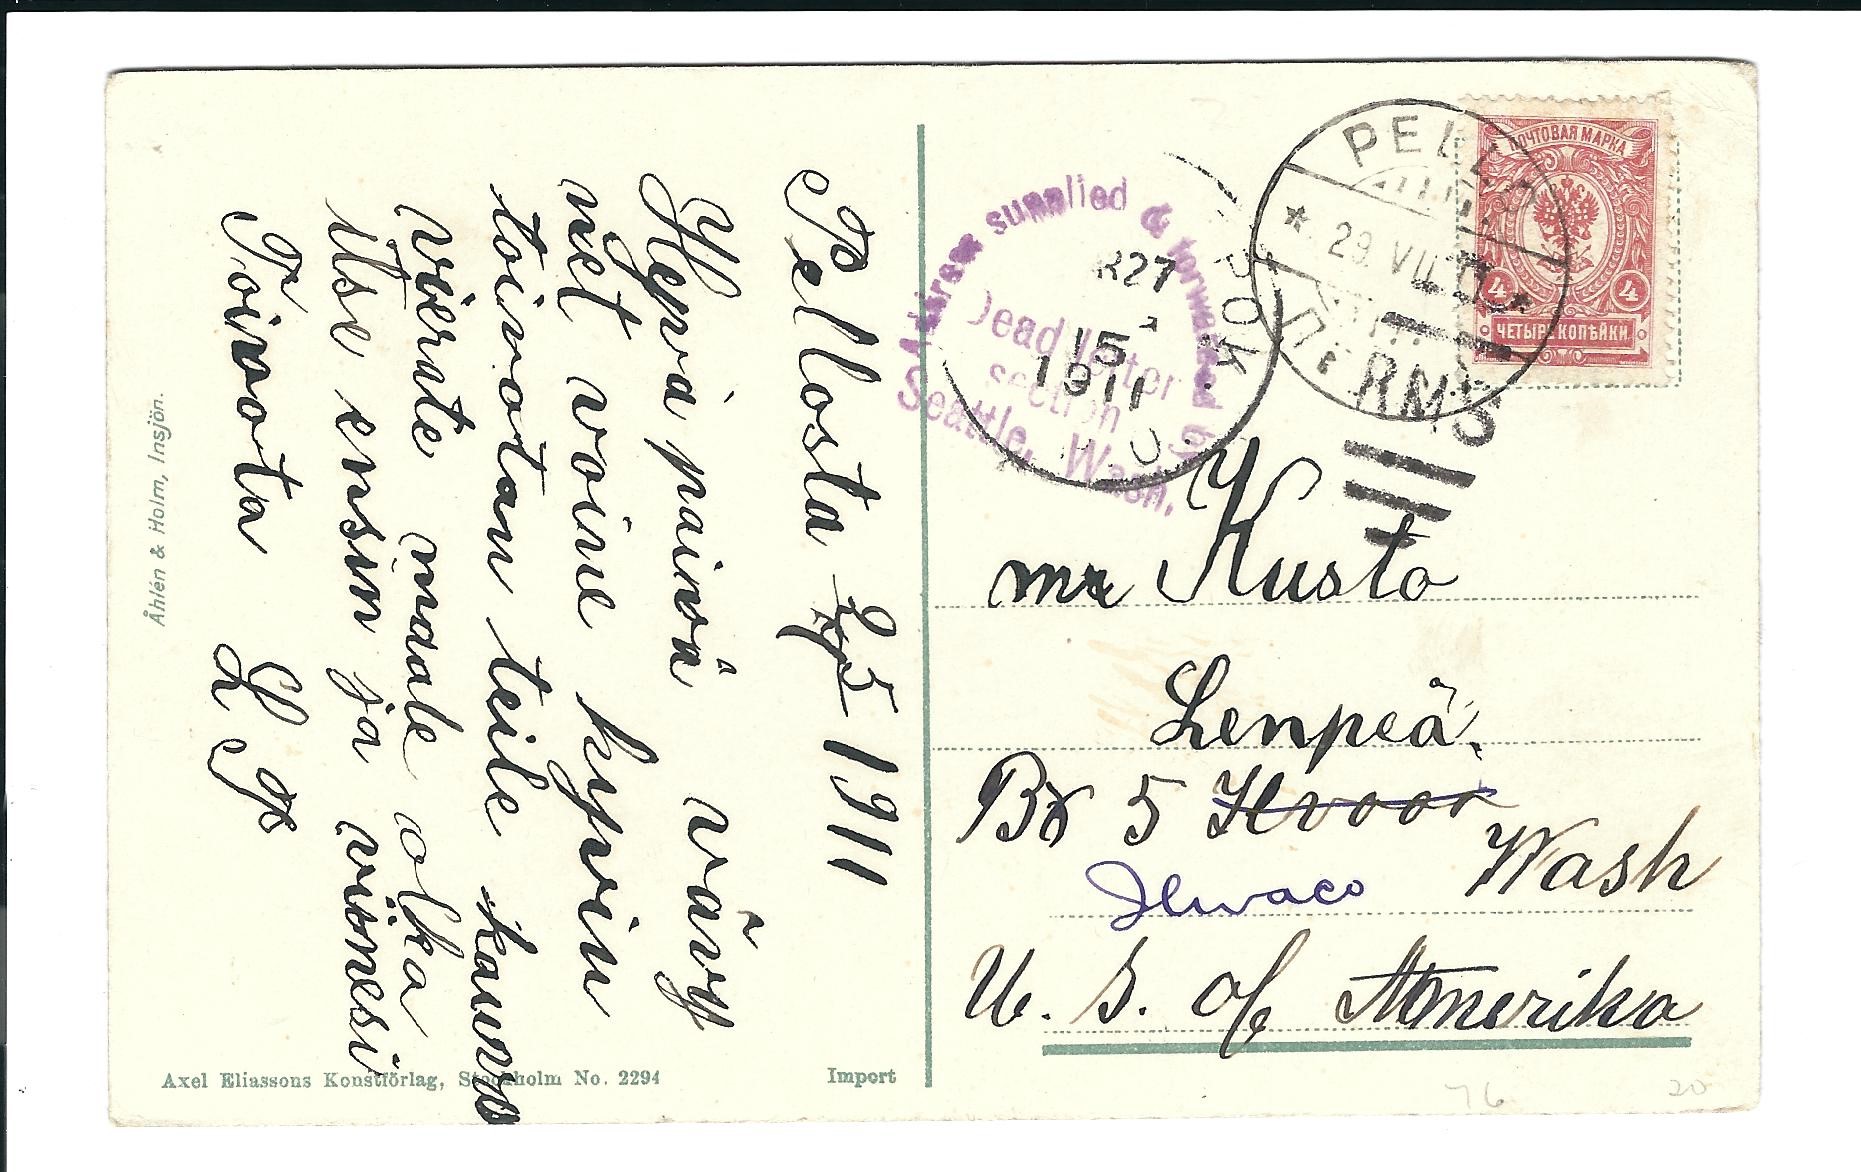 Pellosta 1911
Hyvä päivä
vävy
net voine hyvin
toivotan teile
vierate mdale olka
itse ensin ja
Toivota L
Åhlén & Holm, Insjön.
Axel Eliassons Konstförlag, Stockholm No. 2294
Import
ПОЧТОВАЯ МАРКА
4 4
ЧЕТЫРЕ КОПѢЙКИ.
PELLO
29. VII. 11
RMS
15
1911
Address supplied & forwarded by
Dead letter
section
Seattle, Wash.
mr Kusto
Lenpeä.
Bx 5
Wash
Ilwaco
U. S. of Amerika
76
20